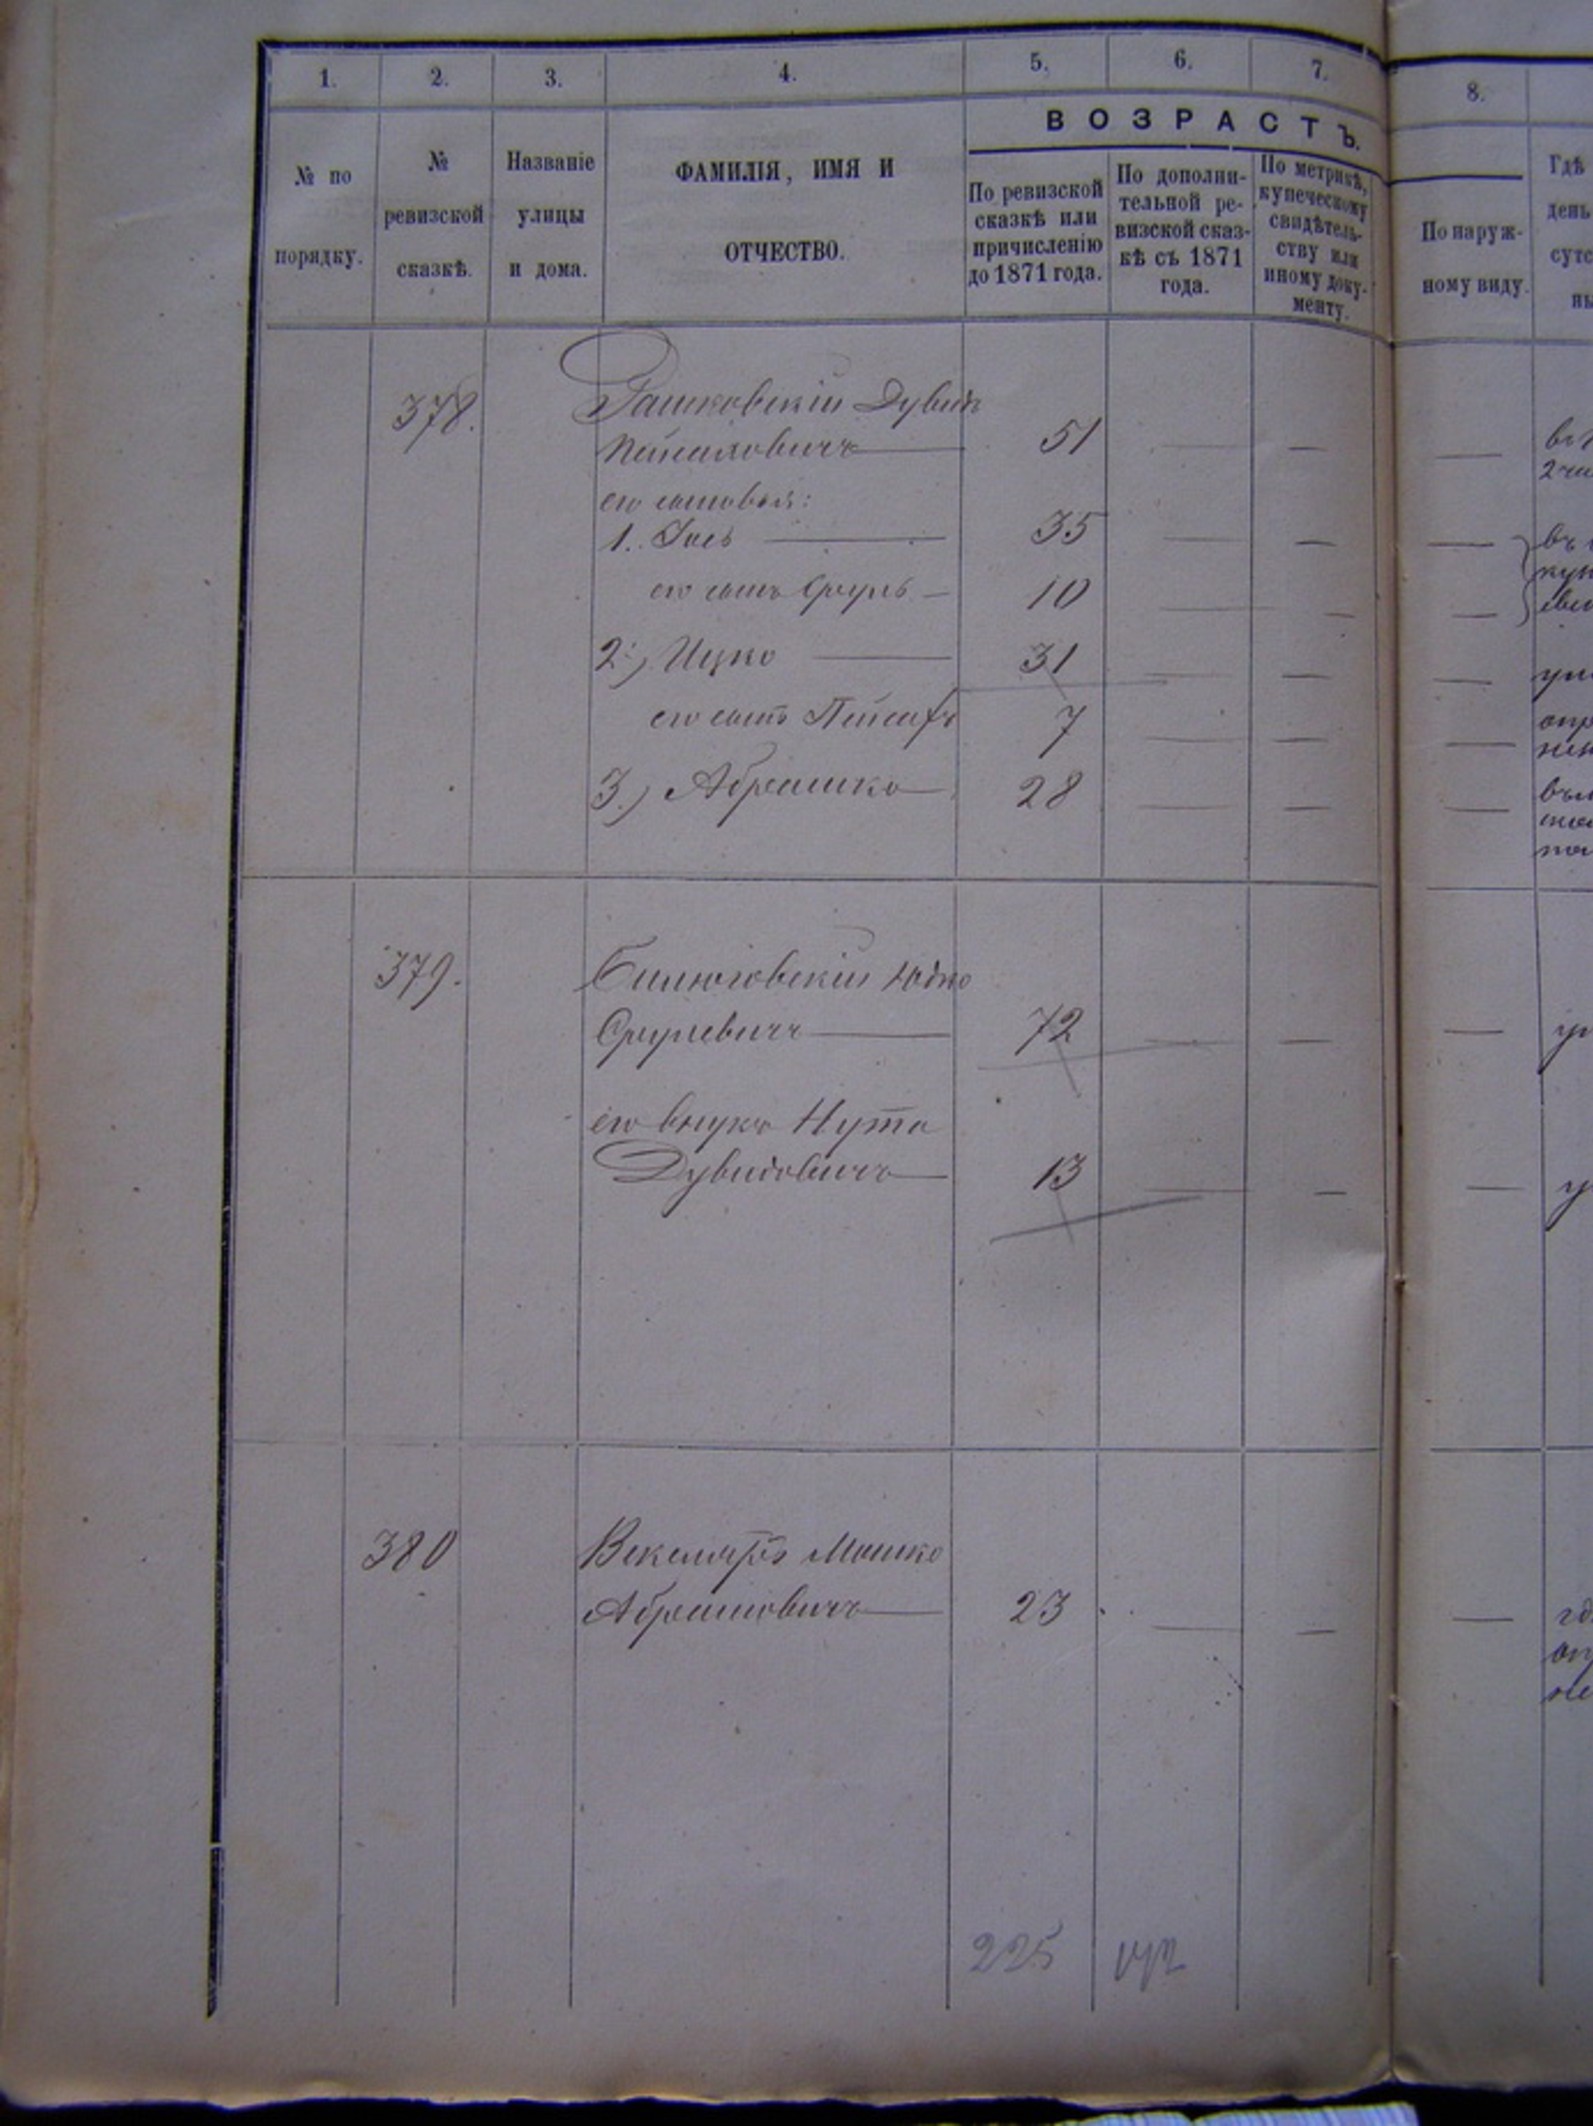 1. 2. 3. 4. 5. 6. 7. 8.
№ по порядку.
№ ревизской сказкѣ.
Названіе улицы и дома.
ФАМИЛІЯ, ИМЯ И
ОТЧЕСТВО.
ВОЗРАСТЪ.
По ревизской
сказкѣ или
причисленію
до 1871 года.
По дополни-
тельной ре-
визской сказ-
кѣ съ 1871
года.
По метрикѣ,
купеческому
свидѣтель-
ству или
иному доку-
менту.
По наруж-
ному виду.
Гдѣ
день
сутс
378. Рашковскій Дувидъ
Пейсаховичъ — 51 — — —
его сыновья:
1. Іось — 35 — — —
его сынъ Сруль — 10 — — —
2.) Ицко — 31 — — —
его сынъ Пейсахъ 7 — — —
3.) Абрашко — 28 — — —
379. Билюговскій Юдко
Срулевичъ — 72 — — —
его внукъ Нута
Дувидовичъ — 13 — — —
380 Векслярь Мошко
Абрашковичъ — 23 — — —
225